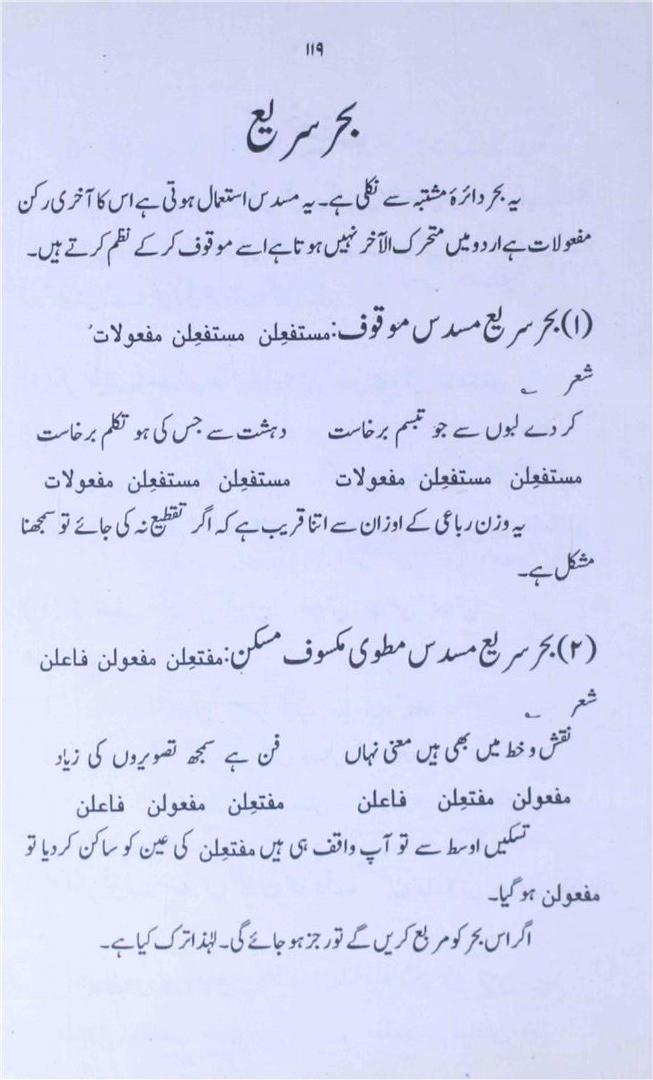 ۱۱۹
بحر سریع
یہ بحر دائرۂ مشتبہ سے نکلی ہے۔ یہ مسدس استعمال ہوتی ہے اس کا آخری رکن
مفعولات ہے اردو میں متحرک الآخر نہیں ہوتا ہے اسے موقوف کر کے نظم کرتے ہیں۔
(۱) بحر سریع مسدس موقوف: مستفعِلن مستفعِلن مفعولاتُ
شعر ؎
کر دے لبوں سے جو تبسم برخاست دہشت سے جس کی ہو تکلم برخاست
مستفعِلن مستفعِلن مفعولات مستفعِلن مستفعِلن مفعولات
یہ وزن رباعی کے اوزان سے اتنا قریب ہے کہ اگر تقطیع نہ کی جائے تو سمجھنا
مشکل ہے۔
(۲) بحر سریع مسدس مطوی مکسوف مسکن: مفتعِلن مفعولن فاعلن
شعر ؎
نقش و خط میں بھی ہیں معنی نہاں فن ہے سمجھ تصویروں کی زیاد
مفعولن مفتعِلن فاعلن مفتعِلن مفعولن فاعلن
تسکیں اوسط سے تو آپ واقف ہی ہیں مفتعِلن کی عین کو ساکن کر دیا تو
مفعولن ہو گیا۔
اگر اس بحر کو مربع کریں گے تو رجز ہو جائے گی۔ لہٰذا ترک کیا ہے۔